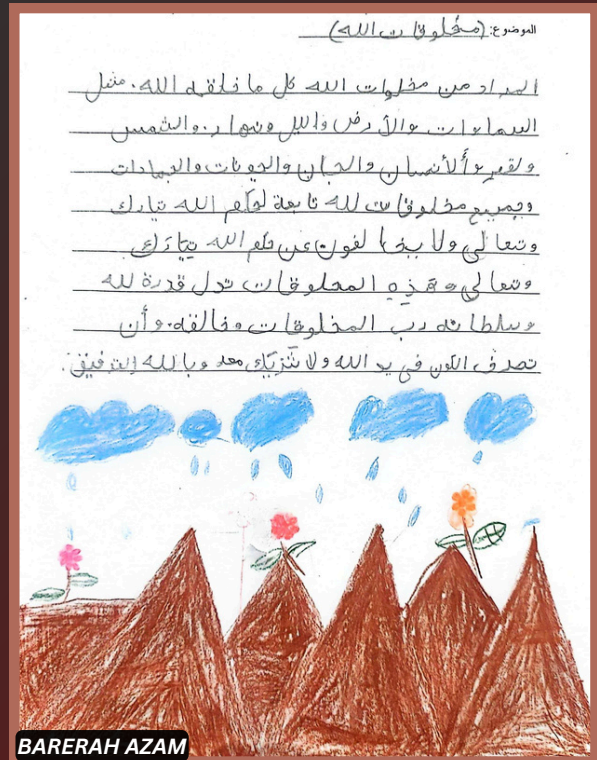 الموضوع: (مخلوقات الله)
المراد من مخلوات الله كل ما خلقه الله. مثل
السماوات والأرض والليل ونهار. والشمس
ولقمر وألأنسان والجبان والحونات والجمادات
وجميع مخلوقات لله تابعة لحكم الله تبارك
وتعالى ولا يخالفون عن حكم الله تبارك
وتعالى وهذه المخلوقات تدل قدرة لله
وسلطانه رب المخلوقات وخالقه. وأن
تصرف الكون في يد الله ولا شريك معه وبالله التوفيق.
BARERAH AZAM